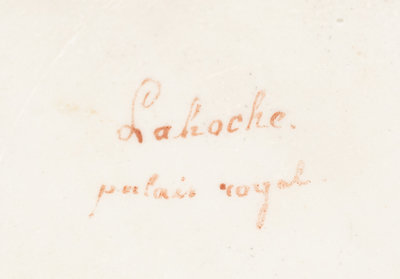 Lahoche.
palais royal